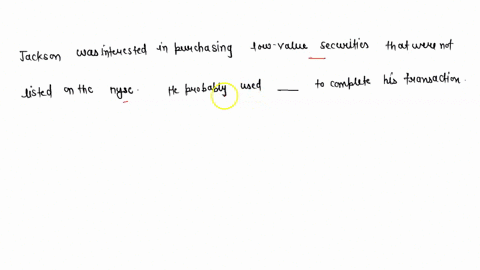 Jackson was interested in purchasing low-value securities that were not
listed on the nyse. He probably used ___ to complete his transaction.